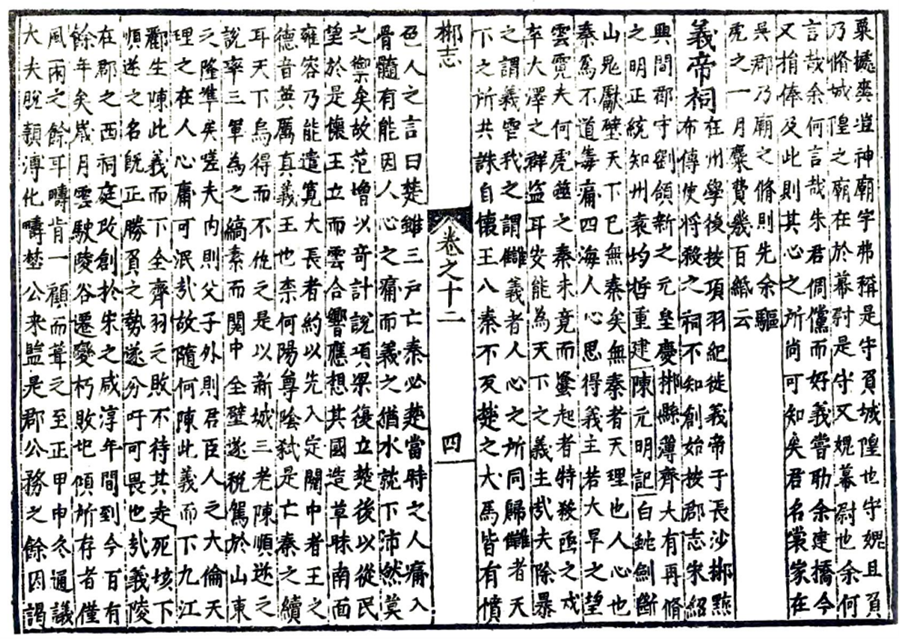 栗撼奕遑神廟字弗稱是守負城隍也守媿且負
乃脩城隍之廟在於幕尉是守又媿幕尉也余何
言哉余何言哉朱君倜儻而好義嘗助余建橋今
又捐俸及此則其心之所尚可知矣君名棠家在
吳郡乃廟之脩則先余驅
虎之一月糜費幾百緡云
義帝祠在州學後按項羽紀徙義帝于長沙郴縣
布傳使將殺之祠不知創始按郡志宋紹
興間郡守劉領新之元皇慶郴縣薄齊大有再脩
之明正統知州袁均哲重建陳元明記白蛇劍斷
山鬼獻璧天下已無秦矣無秦者天理也人心也
秦為不道毒痡四海人心思得義主若大旱之望
雲霓夫何虎踵之秦未竟而蠭起者特鞍函之戍
卒大澤之群盜耳安能為天下之義主哉夫除暴
之謂義雪我之謂讎義者人心之所同歸讎者天
下之所共誅自懷王入秦不反楚之犬馬皆有憤
郴志 卷之十二 四
邑人之言曰楚雖三戶亡秦必楚當時之人痛入
骨髓有能因人心之痛而義之猶水就下沛然莫
之禦矣故范增以奇計說項梁復立楚後以從民
望於是懷王立而雲合響應想其國造草昧南面
雍容乃能遣寬大長者約以先入定關中者王之
德音冀厲真義王也柰何陽尊陰弑是亡秦之續
耳天下烏得而不仇之是以新城三老陳順逆之
說率三軍為之縞素而関中全璧遂稅駕於山東
之隆準矣嗟夫內則父子外則君臣人之大倫天
理之在人心庸可泯哉故隨何陳此義而下九江
酈生陳此義而下全齊羽之敗不待其走死垓下
順逆之名既正勝負之勢遂分吁可畏也哉義陵
在郡之西祠庭政創於宋之咸淳年間到今百有
餘年矣歲月雲駛陵谷遷變朽敗圯傾所存者僅
風雨之餘耳疇肯一顧而葺之至正甲申冬通議
大夫脫穎溥化疇埜公来監是郡公務之餘因謁